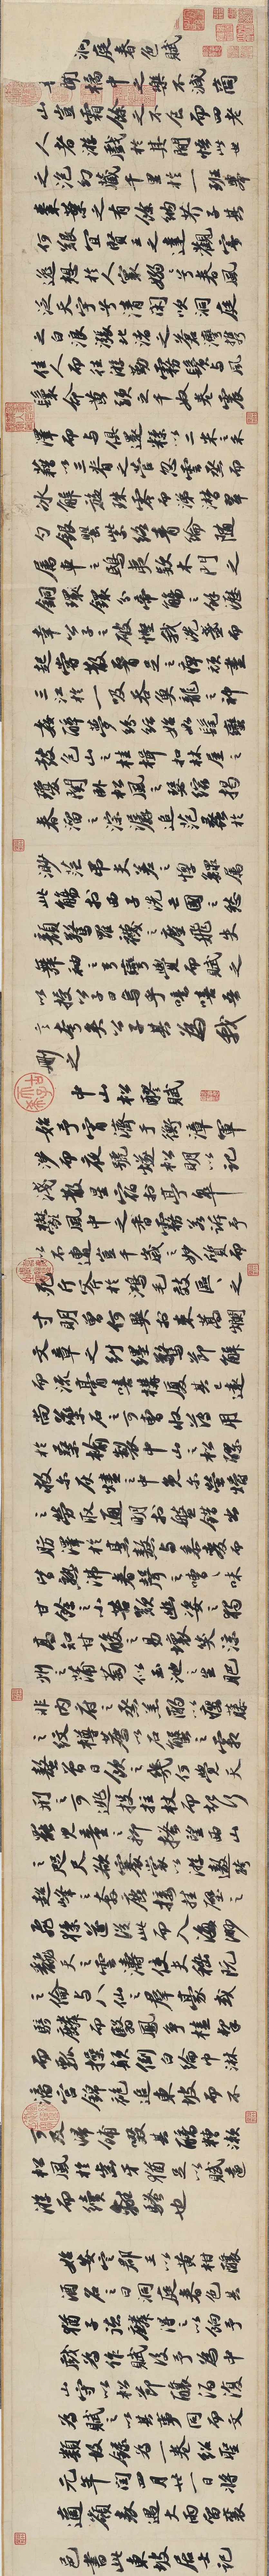 洞庭春色賦
吾聞橘中之樂不減商
山豈霜餘之不食而四老
人者遊戲於其間悟此世
之泡幻藏千里於一班舉
棗葉之有餘納芥子其
何艱宜賢王之達觀寄
逸想於人寰嫋嫋兮春風
泛天宇兮清閑吹洞庭
之白浪漲北渚之蒼灣攜
佳人而往遊勤霧鬢與風
鬟命黃頭之千奴卷震
澤而與俱還糅以二米之禾
藉以三脊之菅忽雲烝而
冰解旋珠零而涕潸翠
勺銀罌紫絡青綸隨
屬車之鴟夷款木門之
銅環分帝觴之餘瀝
幸公子之破慳我洗盞而
起嘗散腰足之痹頑盡
三江於一吸吞魚龍之神
姦醉夢紛紜始如髦蠻
鼓包山之桂楫扣林屋之
瓊關臥松風之瑟縮揭
春溜之淙潺追范蠡於
渺茫弔夫差之惸鰥屬
此觴於西子洗亡國之愁
顏驚羅襪之塵飛失
舞袖之弓彎覺而賦之
以授公子曰烏乎噫嘻吾
言夸矣公子其為我
刪之
中山松醪賦
始予宵濟于衡漳軍
涉而夜號燧松明以記
淺散星宿於亭皋
鬱風中之香霧若訴予
以不遭豈千歲之妙質而
死斤斧於鴻毛效區區之
寸明曾何異於束蒿爛
文章之糾纆驚節解
而流膏嘻構廈其已遠
尚藥石之可曹收薄用
於桑榆製中山之松醪
救爾灰燼之中免爾螢爝
之勞取通明於盤錯出
肪澤於烹熬與黍麥而
皆熟沸舂聲之嘈嘈味
甘餘之小苦歎幽姿之獨
高知甘酸之易壞笑涼
州之蒲萄似玉池之生肥
非內府之蒸羔酌以癭藤
之紋樽薦以石蟹之霜
螯曾日飲之幾何覺天
刑之可逃投拄杖而起行
罷兒童之抑搔望西山
之咫尺欲褰裳以遊遨跨
超峰之奔鹿接掛壁之
飛猱遂從此而入海渺
翻天之雲濤使夫嵇阮
之倫與八仙之群豪或
騎麟而翳鳳爭榼挈
而瓢操顛倒白綸巾淋
漓宮錦袍追東坡而不
可及歸餔歠其醨糟漱
松風於齒牙猶足以賦遠
游而續離騷也
始安定郡王以黃柑釀
酒名之曰洞庭春色其
猶子德麟得之以餉予
戲為作賦後予為中
山守以松節釀酒復
為賦之以其事同而文
類故錄為一卷紹聖
元年閏四月廿一日將
適嶺表遇大雨留襄
邑書此東坡居士記